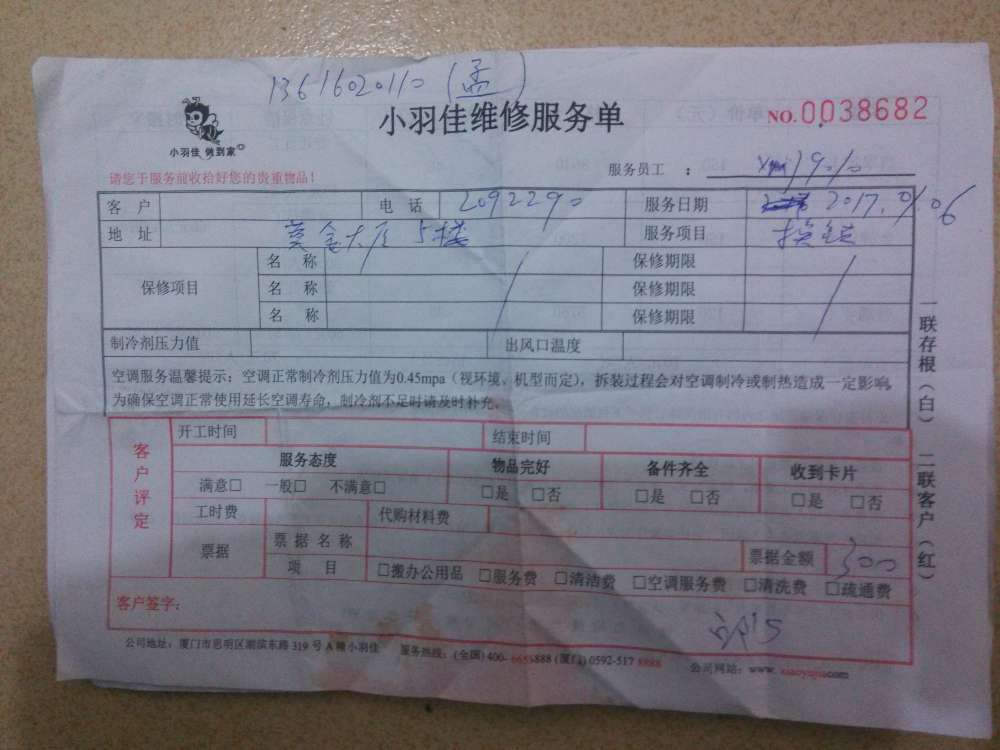 13616020110(孟)
小羽佳 做到家
小羽佳维修服务单
NO.0038682
请您于服务前收拾好您的贵重物品!
服务员工 :
客户 电话 2092290 服务日期 2017.01.06
地址 黄金大厦5楼 服务项目 换锁
保修项目 名称 保修期限
名称 保修期限
名称 保修期限
制冷剂压力值 出风口温度
空调服务温馨提示:空调正常制冷剂压力值为0.45mpa(视环境、机型而定),拆装过程会对空调制冷或制热造成一定影响,
为确保空调正常使用延长空调寿命,制冷剂不足时请及时补充。
客户评定
开工时间 结束时间
服务态度 物品完好 备件齐全 收到卡片
满意□ 一般□ 不满意□ □是 □否 □是 □否 □是 □否
工时费 代购材料费
票据 票据名称 票据金额 300
项目 □搬办公用品 □服务费 □清洁费 □空调服务费 □清洗费 □疏通费
客户签字:
公司地址:厦门市思明区湖滨东路 319 号 A 幢小羽佳 服务热线:(全国)400-6655888 (厦门)0592-517 8888 公司网站:www.xiaoyujia.com
一联存根(白) 二联客户(红)